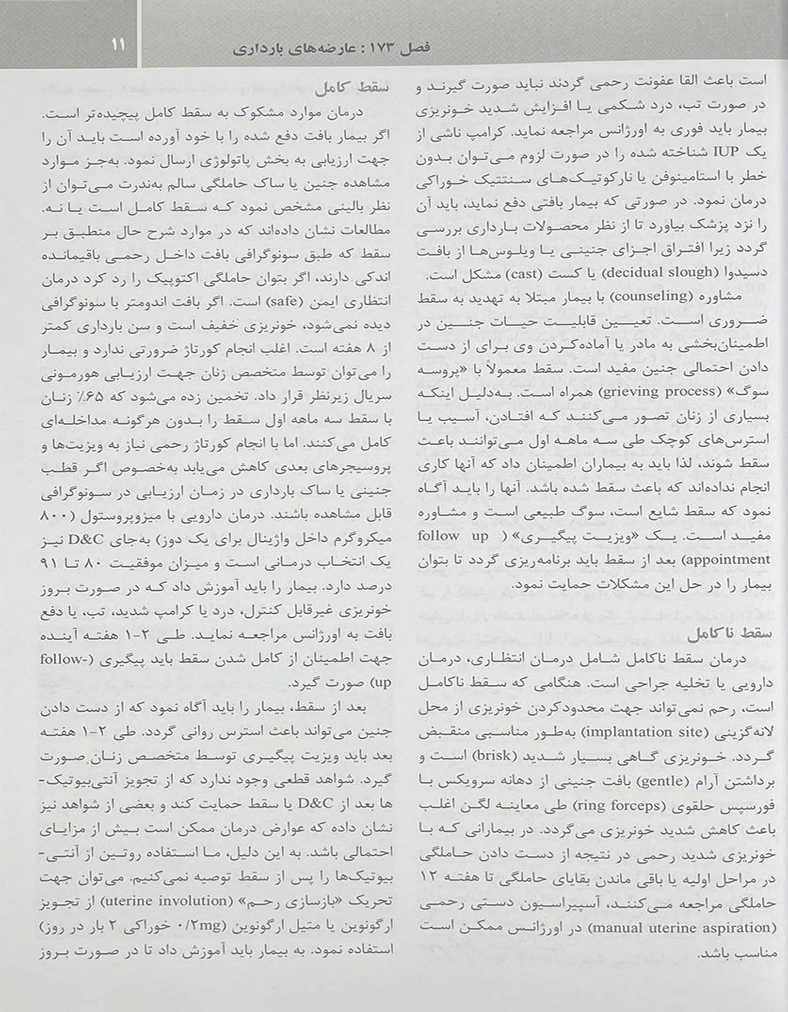 فصل ۱۷۳ : عارضه‌های بارداری
۱۱
است باعث القا عفونت رحمی گردند نباید صورت گیرند و
در صورت تب، درد شکمی یا افزایش شدید خونریزی
بیمار باید فوری به اورژانس مراجعه نماید. کرامپ ناشی از
یک IUP شناخته شده را در صورت لزوم می‌توان بدون
خطر با استامینوفن یا نارکوتیک‌های سنتتیک خوراکی
درمان نمود. در صورتی که بیمار بافتی دفع نماید، باید آن
را نزد پزشک بیاورد تا از نظر محصولات بارداری بررسی
گردد زیرا افتراق اجزای جنینی یا ویلوس‌ها از بافت
دسیدوا (decidual slough) یا کست (cast) مشکل است.
مشاوره (counseling) با بیمار مبتلا به تهدید به سقط
ضروری است. تعیین قابلیت حیات جنین در
اطمینان‌بخشی به مادر یا آماده‌کردن وی برای از دست
دادن احتمالی جنین مفید است. سقط معمولاً با «پروسه
سوگ» (grieving process) همراه است. به‌دلیل اینکه
بسیاری از زنان تصور می‌کنند که افتادن، آسیب یا
استرس‌های کوچک طی سه ماهه اول می‌توانند باعث
سقط شوند، لذا باید به بیماران اطمینان داد که آنها کاری
انجام نداده‌اند که باعث سقط شده باشد. آنها را باید آگاه
نمود که سقط شایع است، سوگ طبیعی است و مشاوره
مفید است. یک «ویزیت پیگیری» (follow up
appointment) بعد از سقط باید برنامه‌ریزی گردد تا بتوان
بیمار را در حل این مشکلات حمایت نمود.
سقط ناکامل
درمان سقط ناکامل شامل درمان انتظاری، درمان
دارویی یا تخلیه جراحی است. هنگامی که سقط ناکامل
است، رحم نمی‌تواند جهت محدودکردن خونریزی از محل
لانه‌گزینی (implantation site) به‌طور مناسبی منقبض
گردد. خونریزی گاهی بسیار شدید (brisk) است و
برداشتن آرام (gentle) بافت جنینی از دهانه سرویکس با
فورسپس حلقوی (ring forceps) طی معاینه لگن اغلب
باعث کاهش شدید خونریزی می‌گردد. در بیمارانی که با
خونریزی شدید رحمی در نتیجه از دست دادن حاملگی
در مراحل اولیه یا باقی ماندن بقایای حاملگی تا هفته ۱۲
حاملگی مراجعه می‌کنند، آسپیراسیون دستی رحمی
(manual uterine aspiration) در اورژانس ممکن است
مناسب باشد.
سقط کامل
درمان موارد مشکوک به سقط کامل پیچیده‌تر است.
اگر بیمار بافت دفع شده را با خود آورده است باید آن را
جهت ارزیابی به بخش پاتولوژی ارسال نمود. به‌جز موارد
مشاهده جنین یا ساک حاملگی سالم به‌ندرت می‌توان از
نظر بالینی مشخص نمود که سقط کامل است یا نه.
مطالعات نشان داده‌اند که در موارد شرح حال منطبق بر
سقط که طبق سونوگرافی بافت داخل رحمی باقیمانده
اندکی دارند، اگر بتوان حاملگی اکتوپیک را رد کرد درمان
انتظاری ایمن (safe) است. اگر بافت اندومتر با سونوگرافی
دیده نمی‌شود، خونریزی خفیف است و سن بارداری کمتر
از ۸ هفته است. اغلب انجام کورتاژ ضرورتی ندارد و بیمار
را می‌توان توسط متخصص زنان جهت ارزیابی هورمونی
سریال زیرنظر قرار داد. تخمین زده می‌شود که ۶۵٪ زنان
با سقط سه ماهه اول سقط را بدون هرگونه مداخله‌ای
کامل می‌کنند. اما با انجام کورتاژ رحمی نیاز به ویزیت‌ها و
پروسیجرهای بعدی کاهش می‌یابد به‌خصوص اگر قطب
جنینی یا ساک بارداری در زمان ارزیابی در سونوگرافی
قابل مشاهده باشند. درمان دارویی با میزوپروستول (۸۰۰
میکروگرم داخل واژینال برای یک دوز) به‌جای D&C نیز
یک انتخاب درمانی است و میزان موفقیت ۸۰ تا ۹۱
درصد دارد. بیمار را باید آموزش داد که در صورت بروز
خونریزی غیرقابل کنترل، درد یا کرامپ شدید، تب، یا دفع
بافت به اورژانس مراجعه نماید. طی ۲-۱ هفته آینده
جهت اطمینان از کامل شدن سقط باید پیگیری (follow-
up) صورت گیرد.
بعد از سقط، بیمار را باید آگاه نمود که از دست دادن
جنین می‌تواند باعث استرس روانی گردد. طی ۲-۱ هفته
بعد باید ویزیت پیگیری توسط متخصص زنان صورت
گیرد. شواهد قطعی وجود ندارد که از تجویز آنتی‌بیوتیک-
ها بعد از D&C یا سقط حمایت کند و بعضی از شواهد نیز
نشان داده که عوارض درمان ممکن است بیش از مزایای
احتمالی باشد. به این دلیل، ما استفاده روتین از آنتی-
بیوتیک‌ها را پس از سقط توصیه نمی‌کنیم. می‌توان جهت
تحریک «بازسازی رحم» (uterine involution) از تجویز
ارگونوین یا متیل ارگونوین (۰/۲mg خوراکی ۲ بار در روز)
استفاده نمود. به بیمار باید آموزش داد تا در صورت بروز